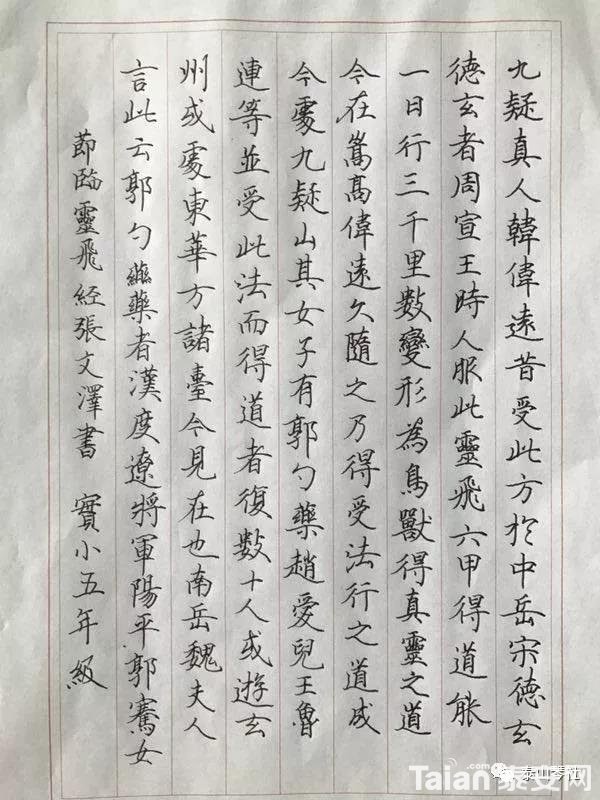 九疑真人韓偉遠昔受此方於中岳宋德玄
德玄者周宣王時人服此靈飛六甲得道能
一日行三千里數變形為鳥獸得真靈之道
今在嵩高偉遠久隨之乃得受法行之道成
今處九疑山其女子有郭勺藥趙愛兒王魯
連等並受此法而得道者復數十人或遊玄
州或處東華方諸臺今見在也南岳魏夫人
言此云郭勺藥者漢度遼將軍陽平郭騫女
節臨靈飛經張文澤書 實小五年級
Taian泰安网